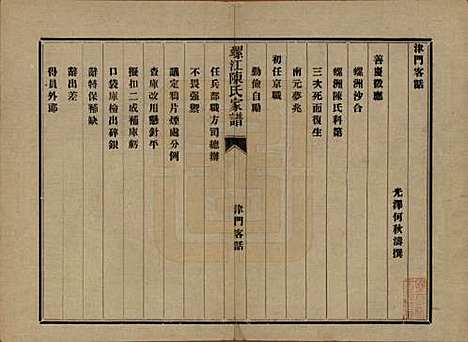 津門客話
光澤何秋濤撰
善慶徵應
螺洲沙合
螺洲陳氏科第
三次死而復生
南元夢兆
初任京職
勤儉自勵
螺江陳氏家譜
津門客話
任兵部職方司總辦
不畏强禦
議定鴉片煙處分例
查庫改用懸針平
擬扣二成補庫虧
口袋庫檢出碎銀
辭特保補缺
辭出差
得員外郎